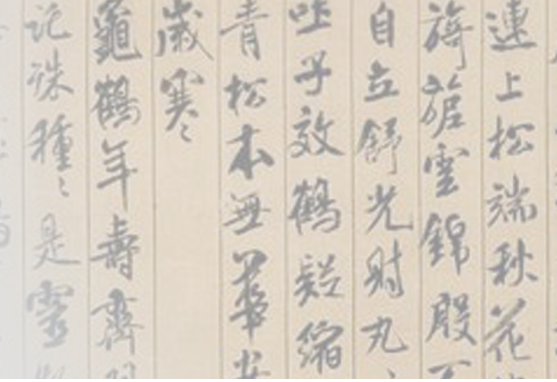 連上松端秋花
旖旎雲錦殷不
自立舒光射丸
吐子效鶴疑縮
青松本無華安
歲寒
龜鶴年壽齊羽
託殊種〻是靈